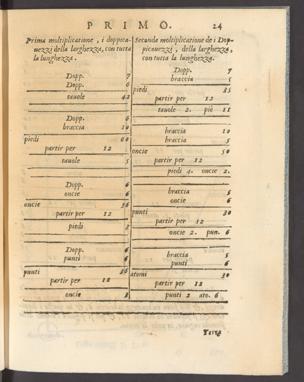 PRIMO. 24
Prima multiplicatione, i doppica-
nezzi della larghezza, con tutta
la lunghezza.
Dopp. 7
Dopp. 6
tauole 42
Dopp. 6
braccia 10
piedi 60
partir per 12
tauole 5
Dopp. 6
oncie 6
oncie 36
partir per 12
piedi 3
Dopp. 6
punti 6
punti 36
partir per 12
oncie 3
Seconda moltiplicatione de i Dop-
picauezzi, della larghezza,
con tutta la lunghezza.
Dopp. 7
braccia 5
piedi 35
partir per 12
tauole 2. piè 11
braccia 10
braccia 5
oncie 50
partir per 12
piedi 4. oncie 2.
braccia 5
oncie 6
punti 30
partir per 12
oncie 2. pun. 6
braccia 5
punti 6
atomi 30
partir per 12
punti 2 ato. 6
Terza